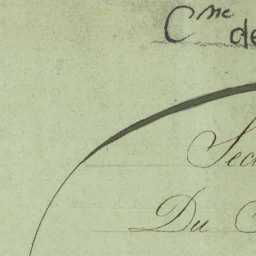 Cne de
Sec
Du C